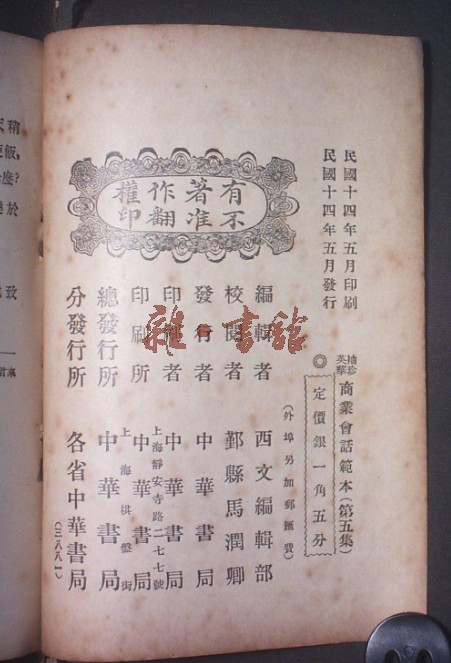 民國十四年五月印刷
民國十四年五月發行
袖珍英華商業會話範本(第五集)
◎定價銀一角五分
(外埠另加郵匯費)
有著作權
不准翻印
編輯者 西文編輯部
校閱者 鄞縣馬潤卿
發行者 中華書局
印刷者 中華書局
上海靜安寺路二七七號
印刷所 中華書局
上海棋盤街
總發行所 中華書局
分發行所 各省中華書局
(三八八一)
雜書館
精
飯,
麽?
於
致